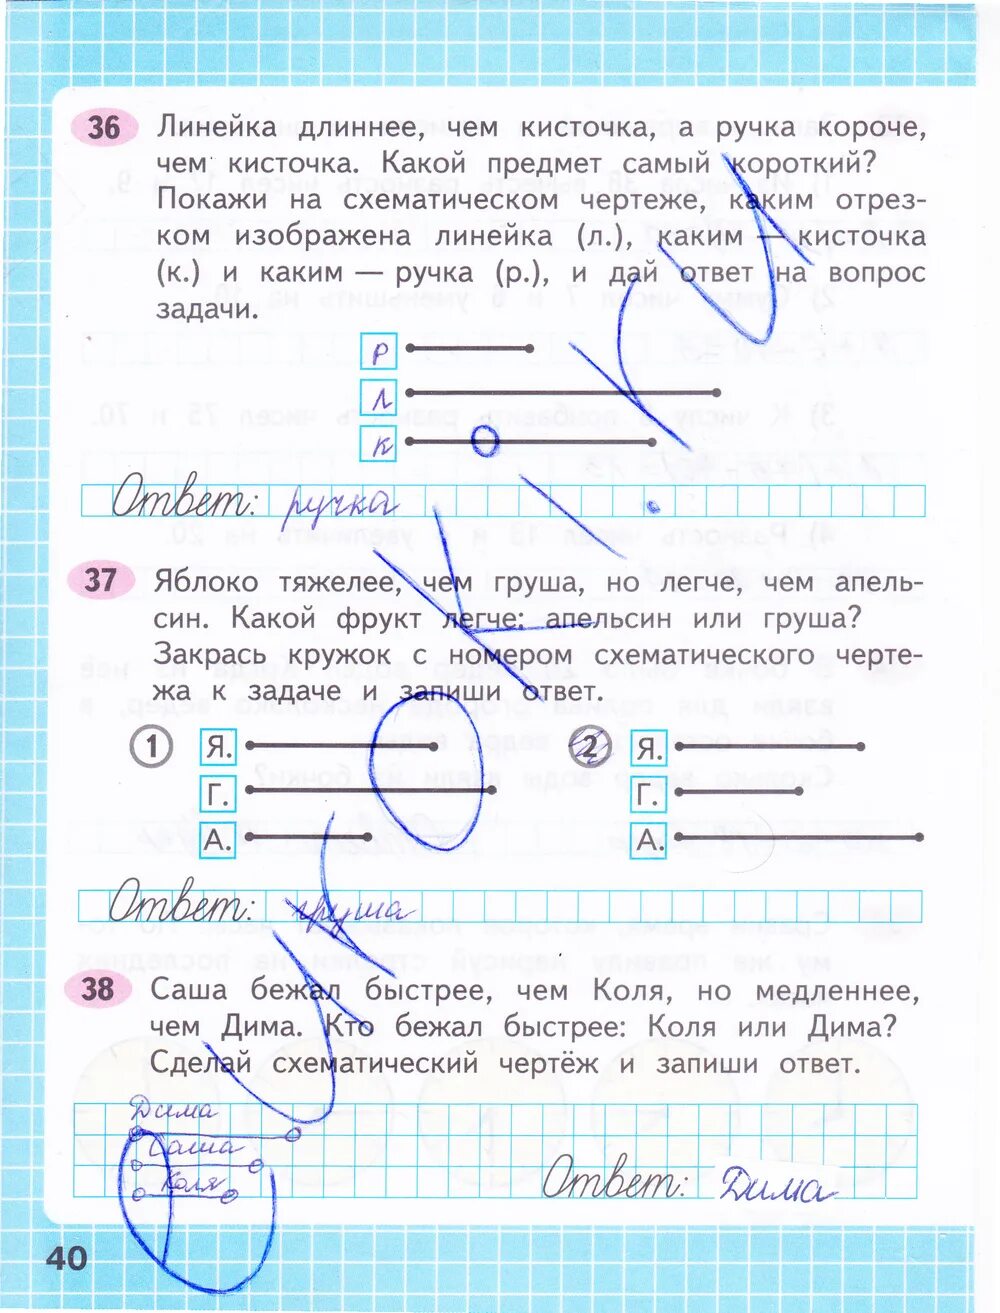 36 Линейка длиннее, чем кисточка, а ручка короче,
чем кисточка. Какой предмет самый короткий?
Покажи на схематическом чертеже, каким отрез-
ком изображена линейка (л.), каким — кисточка
(к.) и каким — ручка (р.), и дай ответ на вопрос
задачи.
р
л
к
Ответ: ручка
37 Яблоко тяжелее, чем груша, но легче, чем апель-
син. Какой фрукт легче: апельсин или груша?
Закрась кружок с номером схематического черте-
жа к задаче и запиши ответ.
1 Я. 2 Я.
Г. Г.
А. А.
Ответ: груша
38 Саша бежал быстрее, чем Коля, но медленнее,
чем Дима. Кто бежал быстрее: Коля или Дима?
Сделай схематический чертёж и запиши ответ.
Дима
Саша
Коля
Ответ: Дима
40